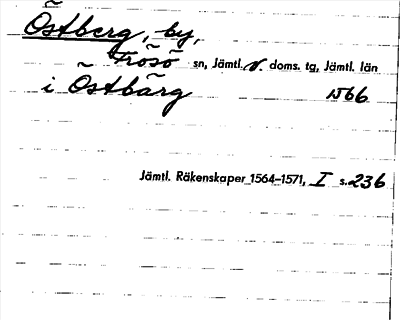 Östberg, by,
Frösö sn, Jämtl. v. doms. tg, Jämtl. län
i Östbärg 1566
Jämtl. Räkenskaper 1564–1571, I s. 236